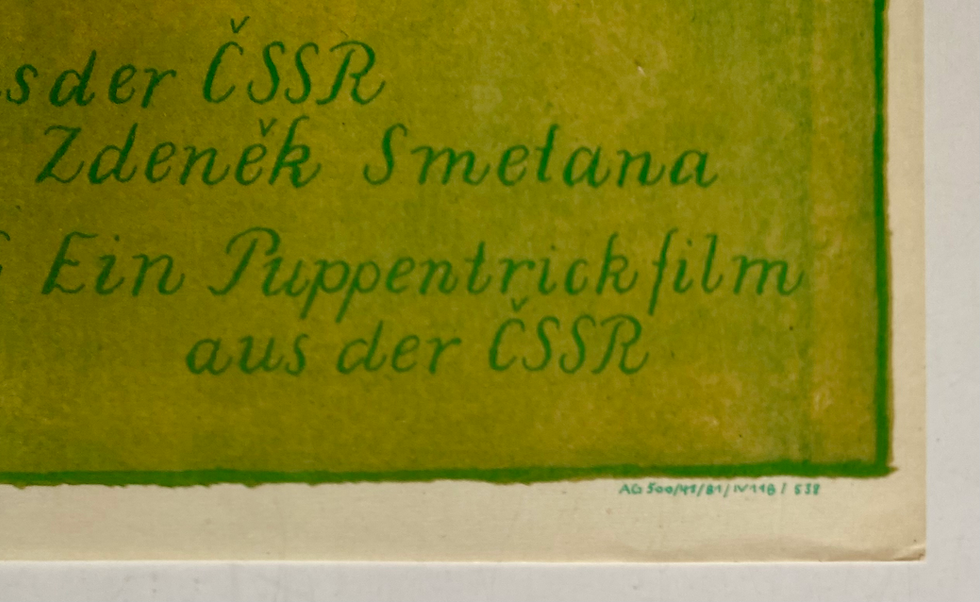 der ČSSR
Zdeněk Smetana
Ein Puppentrickfilm
aus der ČSSR
AG 500/41/81/IV118/ 538